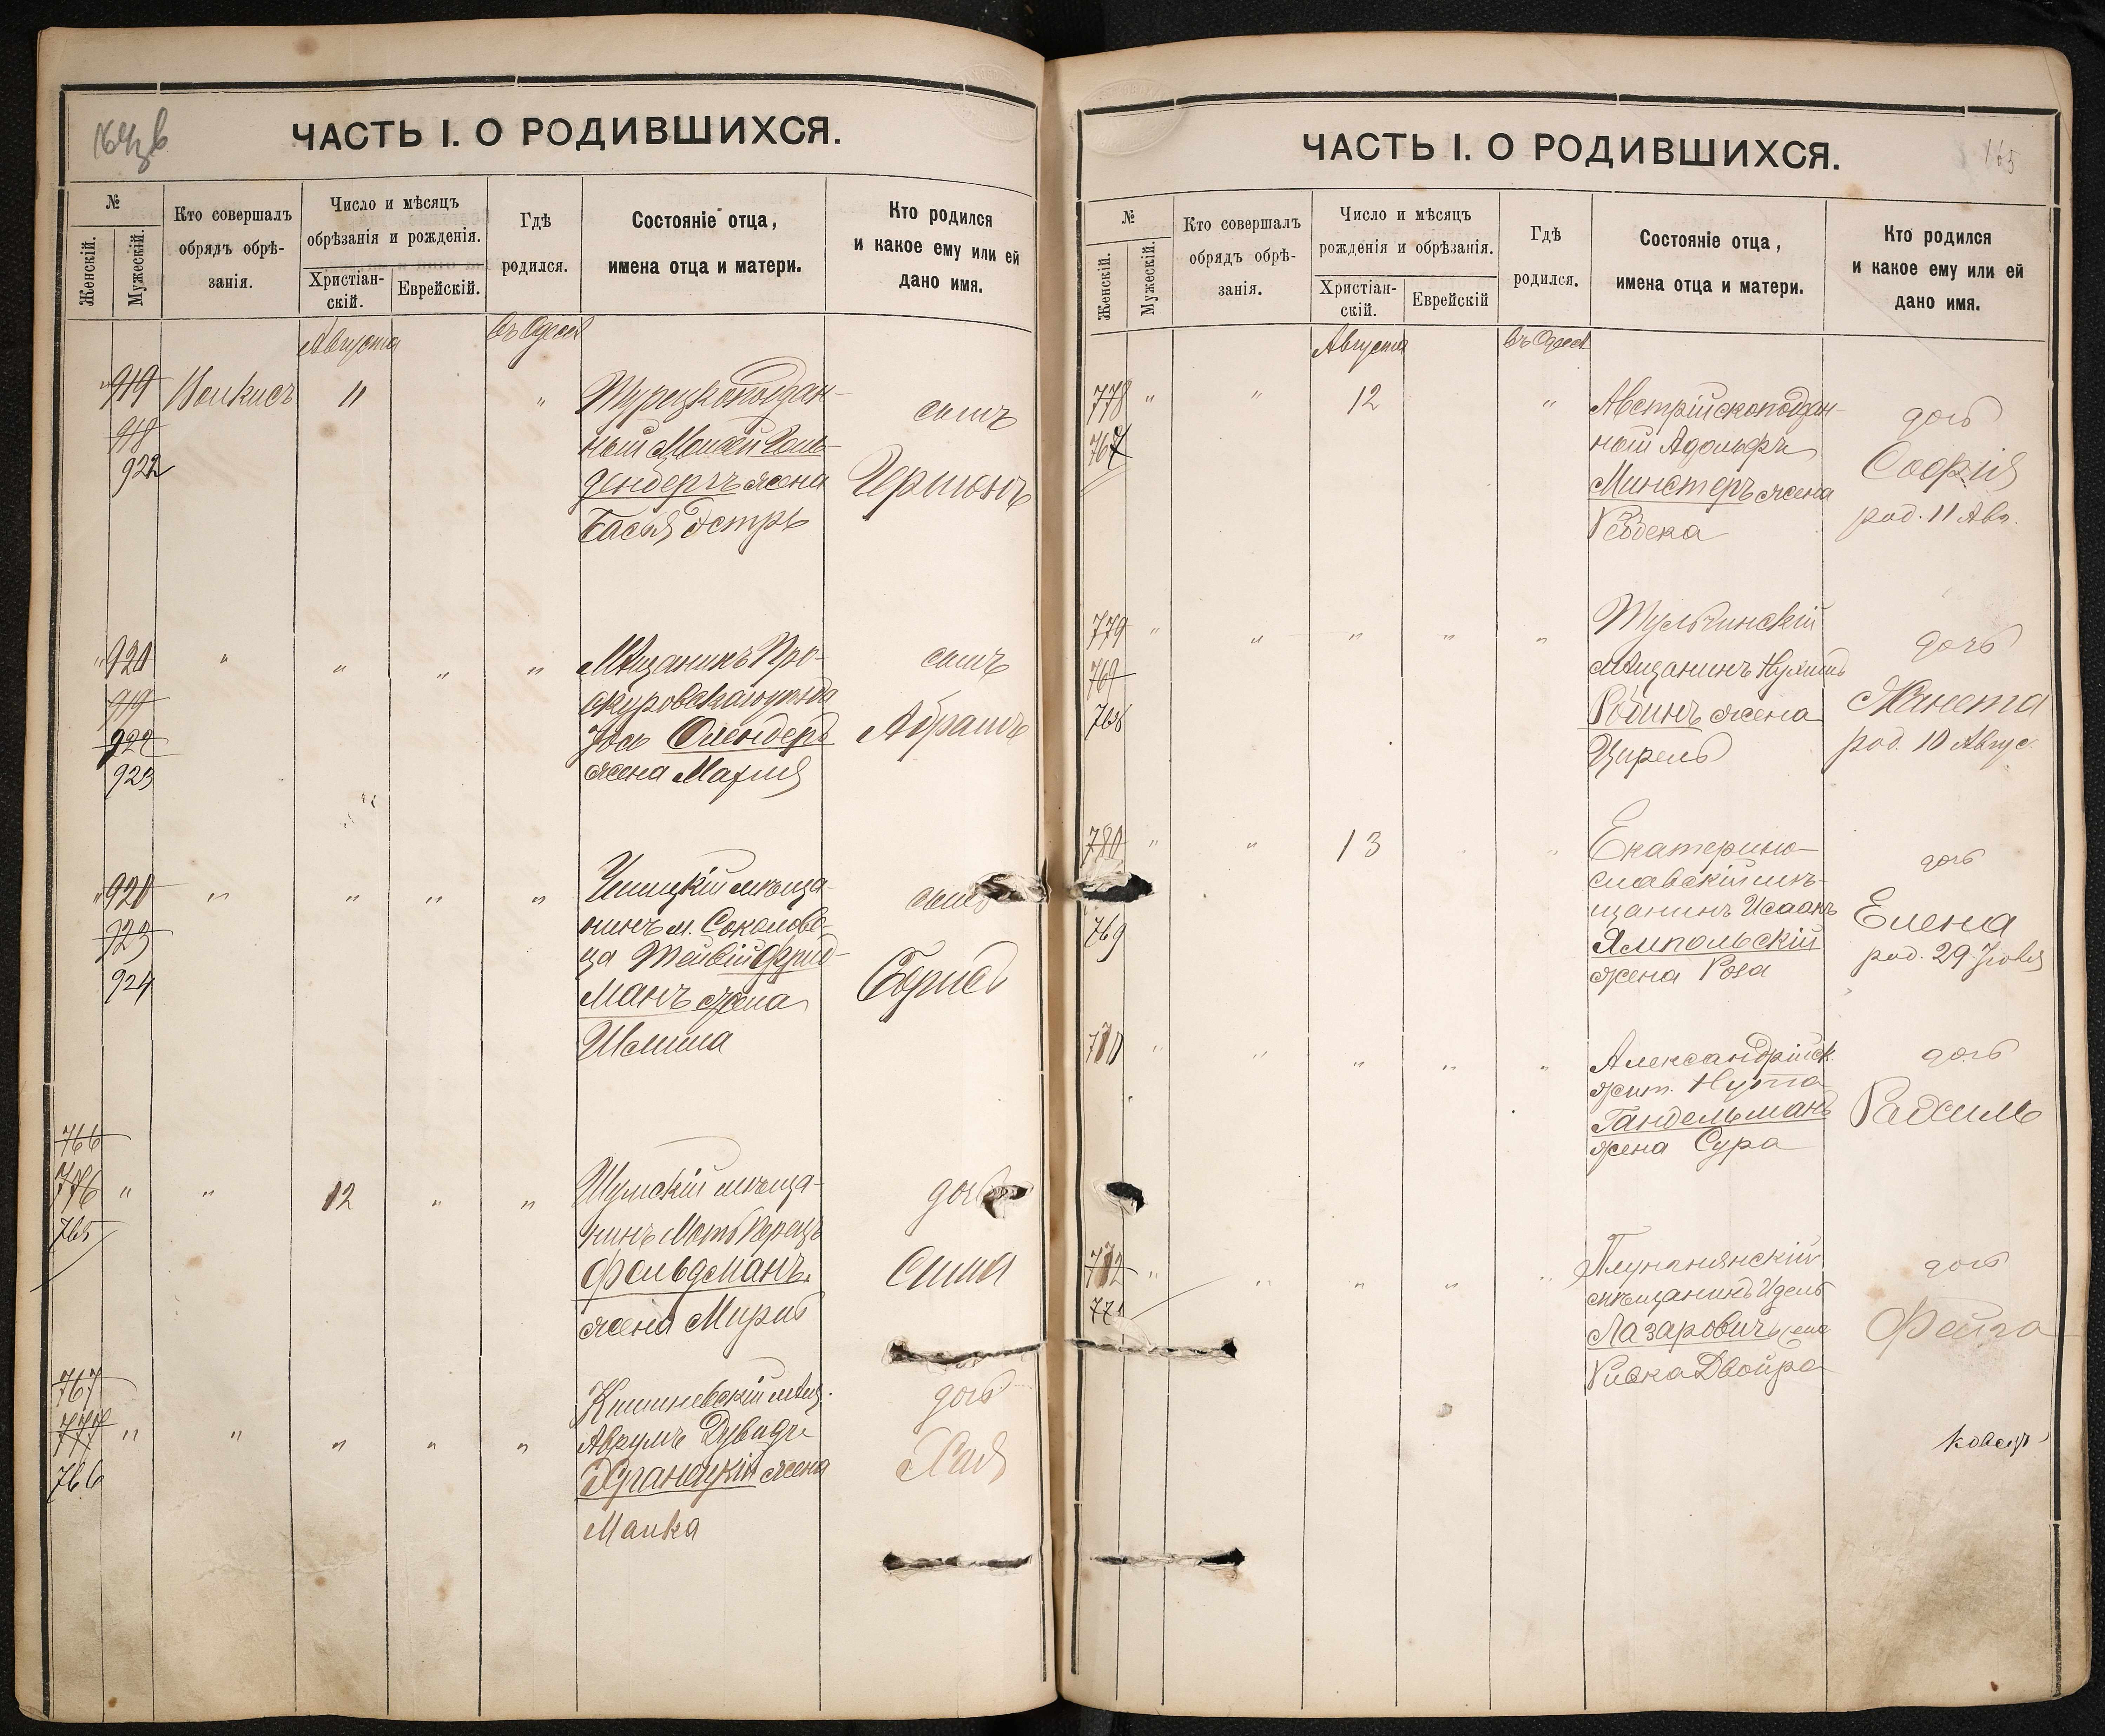 164зв
ЧАСТЬ I. О РОДИВШИХСЯ.
№
Женскій.
Мужескій.
Кто совершалъ
обрядъ обрѣ-
занія.
Число и мѣсяцъ
обрѣзанія и рожденія.
Христіан-
скій.
Еврейскій.
Гдѣ
родился.
Состояніе отца,
имена отца и матери.
Кто родился
и какое ему или ей
дано имя.
Августа
въ Одессѣ
" 919
918
922
11
"
Турецкоподдан-
ный Мошей Голь-
денбергъ жена
Бася Эстръ
сынъ
Гершонъ
" 920
919
922
923
" " " "
Мѣщанинъ Про-
скуровскаго уѣзда
Іось Олендеръ
жена Марія
сынъ
Абрамъ
" 920
923
924
" " " "
мѣща-
нинъ м. Соколов-
ца Тевій Фрид-
манъ жена
сынъ
Борисъ
766
776
765
" "
12
" "
Шумскій мѣща-
нинъ
Фельдманъ.
жена Миря
дочь
Сима
767
777
766
" " " " "
Кишиневскій мѣщ.
Аврумъ
жена
Малка
дочь
Хая
165
ЧАСТЬ I. О РОДИВШИХСЯ.
№
Женскій.
Мужескій.
Кто совершалъ
обрядъ обрѣ-
занія.
Число и мѣсяцъ
рожденія и обрѣзанія.
Христіан-
скій.
Еврейскій
Гдѣ
родился.
Состояніе отца,
имена отца и матери.
Кто родился
и какое ему или ей
дано имя.
Августа
въ Одессѣ
778
767
" "
12
"
Австрійскоподдан-
ный Адольфъ
Минстеръ жена
Ребека
дочь
Софія
род. 11 Авг.
779
769
768
" " " " "
Тульчинскій
мѣщанинъ Нухимъ
Рабинъ жена
Цирель
дочь
Жанета
род. 10 Авгус.
780
769
" "
13
Екатерино-
славскій мѣ-
щанинъ Исаакъ
Ямпольскій
жена Роза
дочь
Елена
род. 29 Іюля
770
" " " " "
Александрійск.
жит. Нута
Гандельманъ
жена Сура
дочь
Рахиль
772
771
" " " " "
мѣщанинъ Идель
Лазаровичъ жена
Ривка Двойра
дочь
Фейга